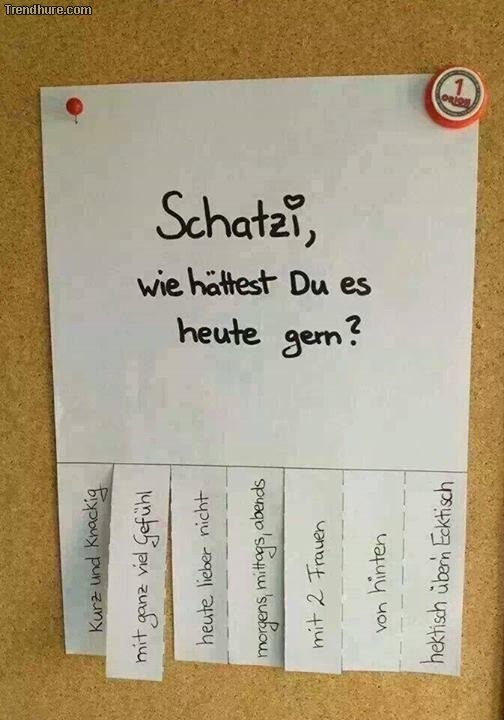 Trendhure.com
1
ORION
Schatzi,
wie hättest Du es
heute gern?
Kurz und Knackig
mit ganz viel Gefühl
heute lieber nicht
morgens, mittags, abends
mit 2 Frauen
von hinten
hektisch über'n Ecktisch